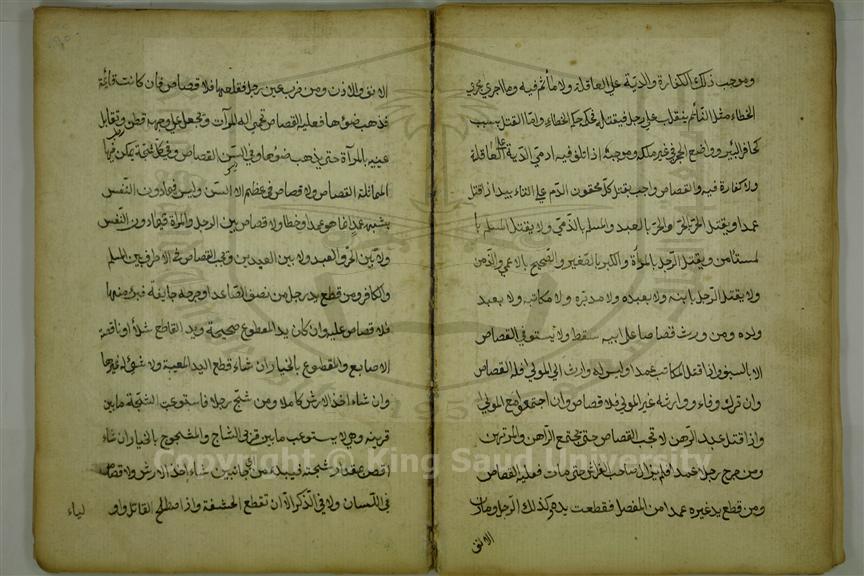 وموجب ذلك الكفارة والدية على العاقلة ولا مأثم فيه وما اجري مجري
الخطاء مثل النائم ينقلب على رجل فيقتله فحكمه حكم الخطاء واما القتل بسبب
كحافر البئر وواضع الحجر في غير ملكه وموجبه اذا تلف فيه ادمي الدية على العاقلة
ولا كفارة فيه والقصاص واجب بقتل كل محقون الدم على التاء بيد اذا قتل
عمدا ويقتل الحر بالحر والحر بالعبد والمسلم بالذمي ولا يقتل المسلم با
لمستامن ويقتل الرجل بالمراة والكبير بالصغير والصحيح بالاعمي والذمن
ولا يقتل الرجل بابنه ولا بعبده ولا مدبره ولا مكاتبه ولا بعبد
ولده ومن ورث قصاصا على ابيه سقط ولا يستوفي القصاص
الا بالسيف واذا قتل المكاتب عمدا وليس له وارث الي المولي فله القصاص
وان ترك وفاء ووارثه غير المولي فلا قصاص وان اجتمعوا مع المولي
واذا قتل عبد الرهن لا تجب القصاص حتى يجتمع الراهن والمرتهن
ومن جرح رجلا عمدا فلم يزال صاحب الفراش حتى مات فعليه القصاص
ومن قطع يد غيره عمدا من المفصل فقطعت يده وكذلك الرجل ومارن
الانق
الانق والاذن ومن ضرب عين رجل فقلعها فلا قصاص فان كانت قائمة
فذهب ضوءها فعليه القصاص تحمي اليه المرآت وتجعل على وجهه قطن وتقابل
عينيه بالمرآة حتى يذهب ضوءها وفي السن القصاص وفي كل شجة يمكن فيها
المماثلة القصاص ولا قصاص في عظم الا السن وليس فيما دون النفس
شبه عمد انما هو عمدا وخطا ولا قصاص بين الرجل والمراة فيما دون النفس
ولا بين الحر والعبد ولا بين العبدين وتجب القصاص في الاطرف بين المسلم
والكافر ومن قطع يد رجل من نصف القاعد او جرحه جايفة فبرء منها
فلا قصاص عليه وان كان يد المقطوع صحيحة ويد القاطع شلاء او ناقصة
الاصابع والمقطوع بالخيار ان شاء قطع اليد المعيبة ولا شيء له غيرها
وان شاء اخذ الارش كاملا ومن شج رجلا فاستوعب الشجة مابين
قرنيه وهي لا يستوعب مابين قرني الشاج والمشجوج بالخيار ان شاء
اقص بمقدار شجته فيبدء من اي جانبين شاء اخذ الارش ولا قصاص
في اللسان ولا في الذكر الا ان تقطع الحشفة واذا اصطلح القاتل واو
لياء
Copyright © King Saud University